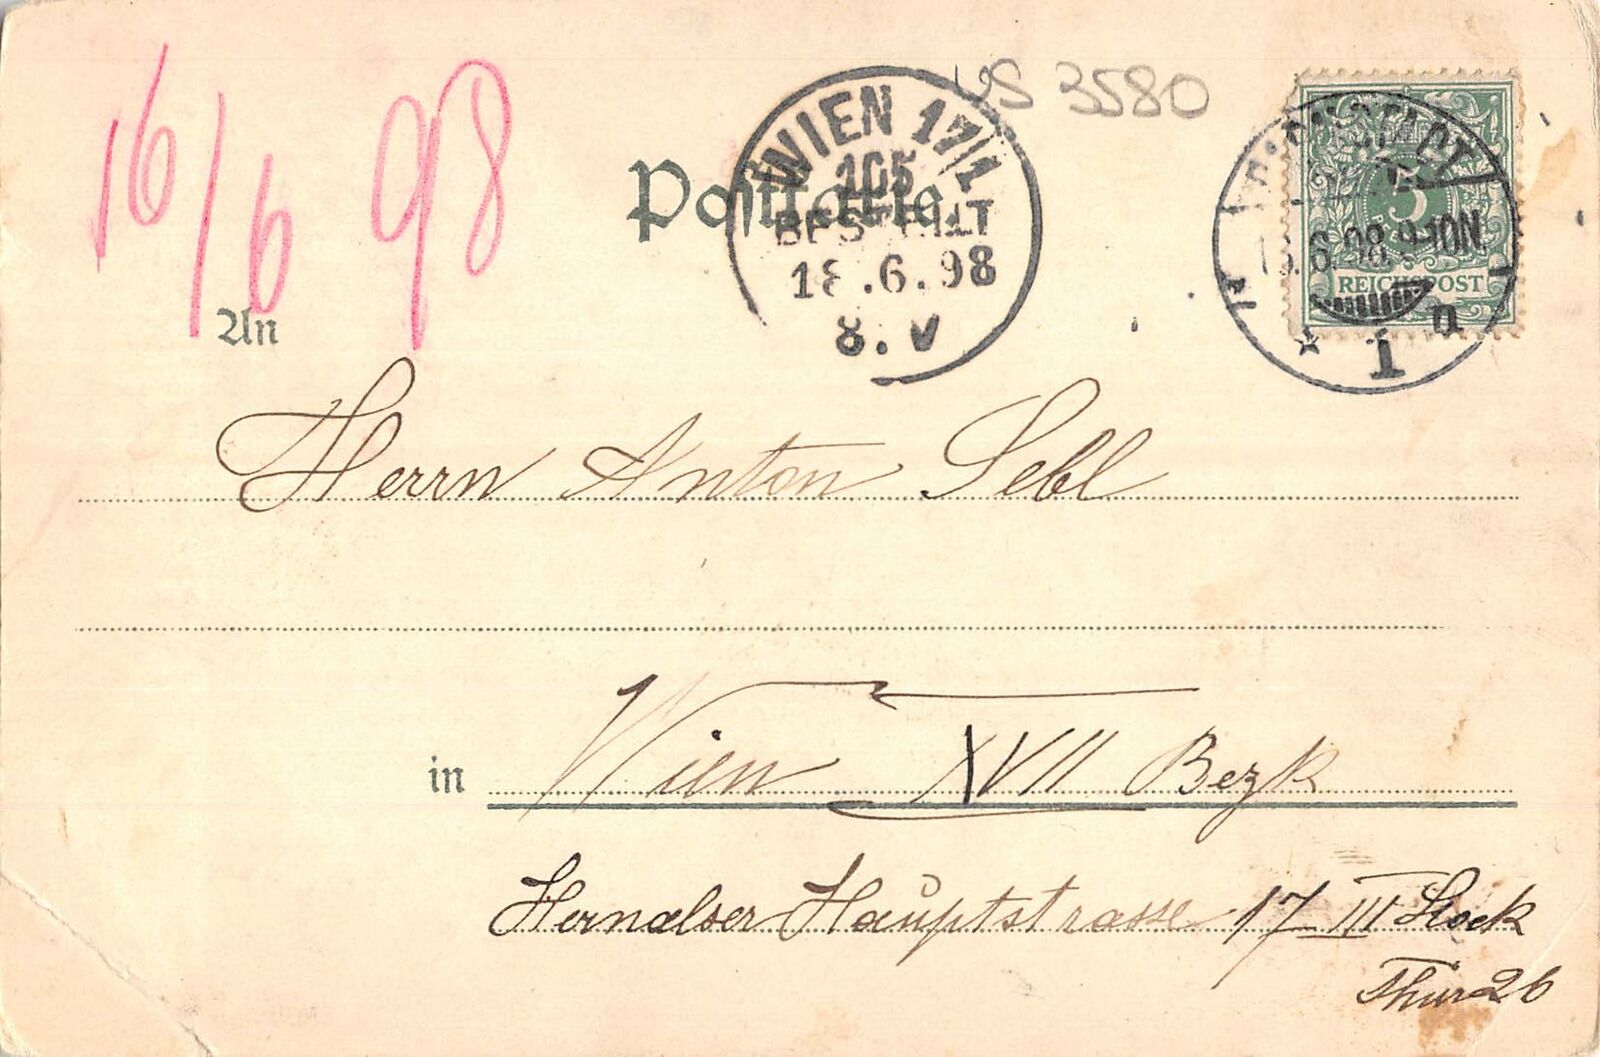 16/6 98
VS 3580
WIEN 17/1
105
BESTELLT
18.6.98
8.V
5
REICHSPOST
6.98 9-10N.
* 1 a
Postkarte
An
Herrn Anton Sebl
in Wien XVII Bezk
Hernalser Hauptstrasse 17 III Stock
Thür 26